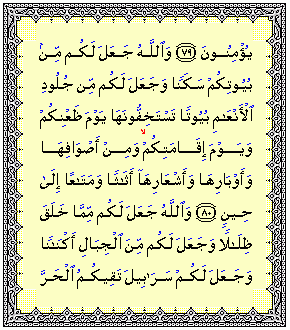 يُؤْمِنُونَ ﴿٧٩﴾ وَٱللَّهُ جَعَلَ لَكُم مِّنۢ
بُيُوتِكُمْ سَكَنًا وَجَعَلَ لَكُم مِّن جُلُودِ
ٱلْأَنْعَٰمِ بُيُوتًا تَسْتَخِفُّونَهَا يَوْمَ ظَعْنِكُمْ
وَيَوْمَ إِقَامَتِكُمْ ۙ وَمِنْ أَصْوَافِهَا
وَأَوْبَارِهَا وَأَشْعَارِهَآ أَثَٰثًا وَمَتَٰعًا إِلَىٰ
حِينٍ ﴿٨٠﴾ وَٱللَّهُ جَعَلَ لَكُم مِّمَّا خَلَقَ
ظِلَٰلًا وَجَعَلَ لَكُم مِّنَ ٱلْجِبَالِ أَكْنَٰنًا
وَجَعَلَ لَكُمْ سَرَٰبِيلَ تَقِيكُمُ ٱلْحَرَّ